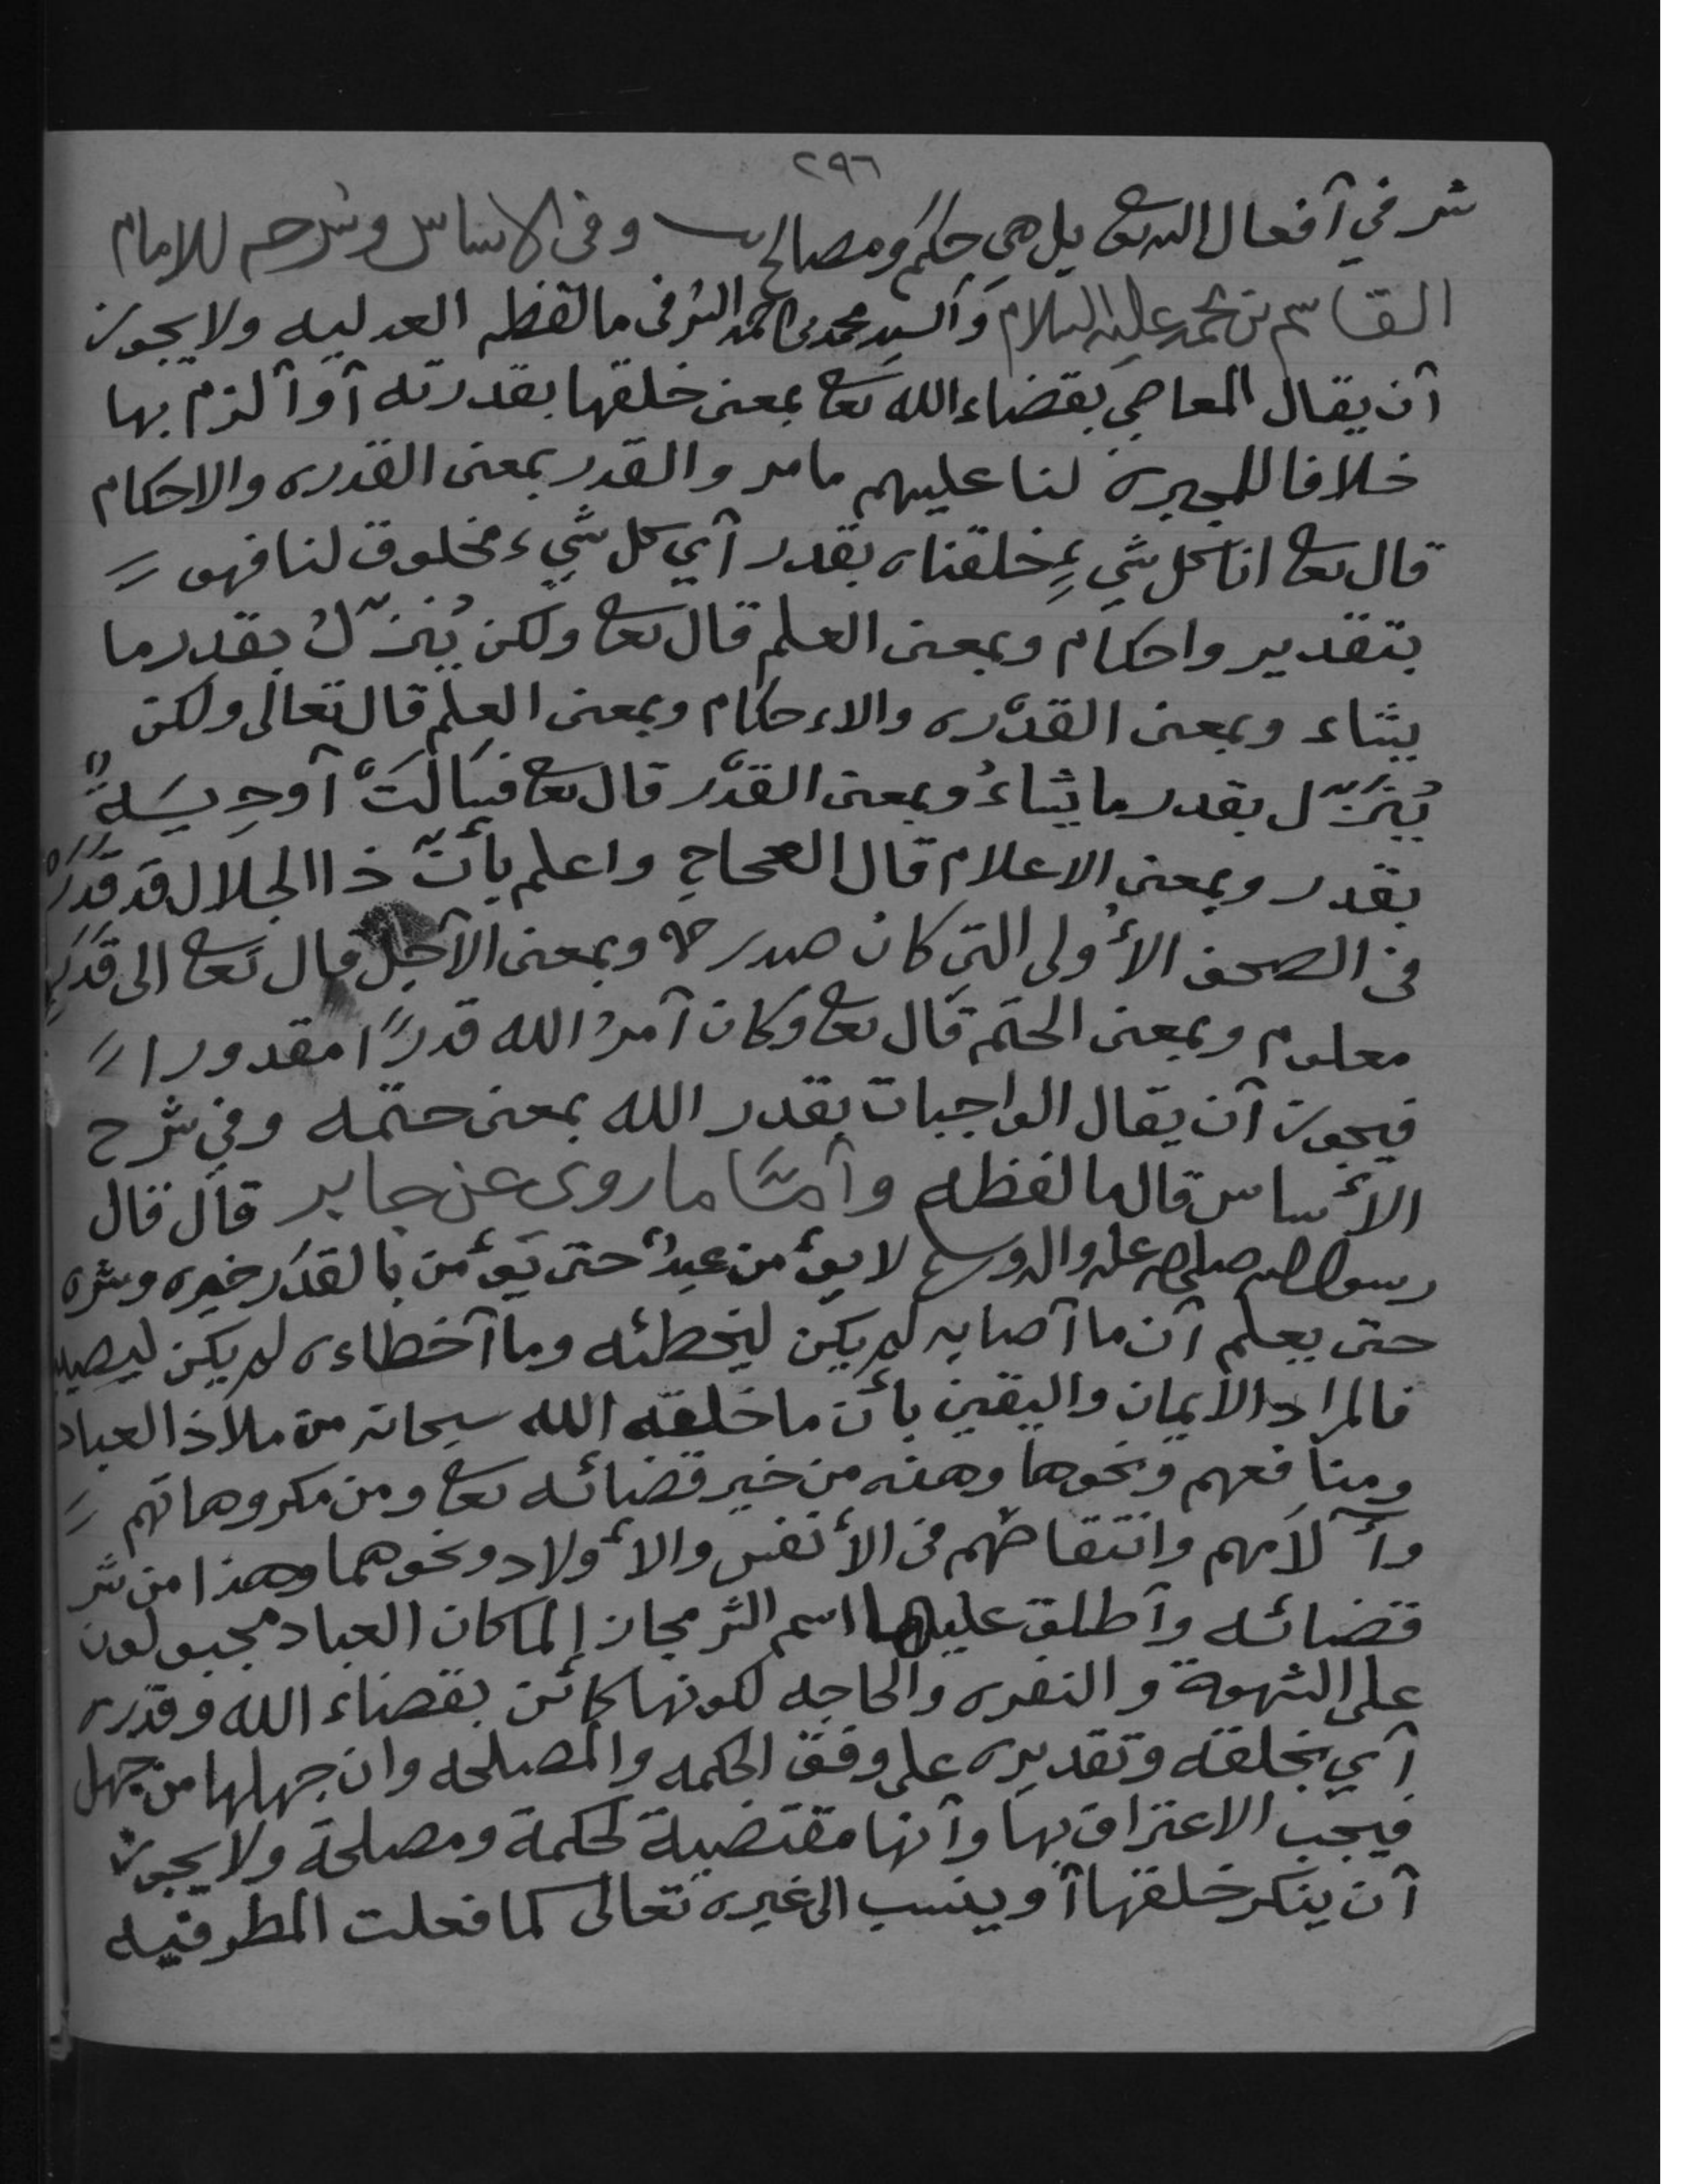 ٢٩٦
شر في آفعال الله تعا بل هي حكم ومصالح وفى الاساس وشرحه للامام
القاسم بن محمد عليه السلام وَالسيد محمد بن احمد الشرفى مالفظه العدليه ولا يجوز
آن يقال المعاصي بقضاء الله تعا بمعنى خلقها بقدرته آو آلزم بها
خلافا للمجبرة لنا عليهم مامر والقدر بمعنى القدره والاحكام
قال تعا انا كل شيءٍ خلقناه بقدر آي كل شيء مخلوق لنا فهو //
بتقدير واحكام وبمعنى العلم قال تعا ولكن يُنزّلُ بقدر ما
يشاء وبمعنى القدْره والاءحكام وبمعنى العلم قال تعالى ولكن
يُنَزّل بقدر ما يشاءُ وبمعنى القدْر قال تعا فسَالتَْ آوديَةٌ
بقدر وبمعنى الاعلام قال العجاج واعلم بأنّ ذا الجلال قد قَدَرْ
فى الصحف الأولى التي كان صدر وبمعنى الآجل قال تعا الى قَدَرٍ
معلوم وبمعنى الحتم قال تعا وكان آمرُ الله قدرًا مقدورا //
فيجوز آن يقال الواجبات بقدر الله بمعنى حتمه وفي شرح
الأساس قال ما لفظه وآمَّا ما روى عن جابر قال قال
رسول الله صلى الله عليه واله وسلم لا يؤمن عبدٌ حتى يؤمن بالقدَر خيره وشره
حتى يعلم آن ما آصابه لم يكن ليخطئه وما آخطاءه لم يكن ليصيبه
فالمراد الأيمان واليقين بأن ما خلقه الله سبحانه من ملاذ العباد
ومنافعهم ونحوها وهذه من خير قضائه تعا ومن مكروهاتهم //
وآلامهم وانتقاصهم فى الأنفس والأولاد ونحوهما وهذا من شر
قضائه وآطلق عليها اسم الشر مجازا لما كان العباد مجبولون
على الشهوة والنفره والحاجه لكونها كائن بقضاء الله وقدره
آي بخلقه وتقديره على وفق الحكمه والمصلحه وان جهلها من جهل
فيجب الاعتراف بها وآنها مقتضية لحكمة ومصلحة ولا يجوز
آن ينكر خلقها آو ينسب الى غيره تعالى كما فعلت المطرفيه